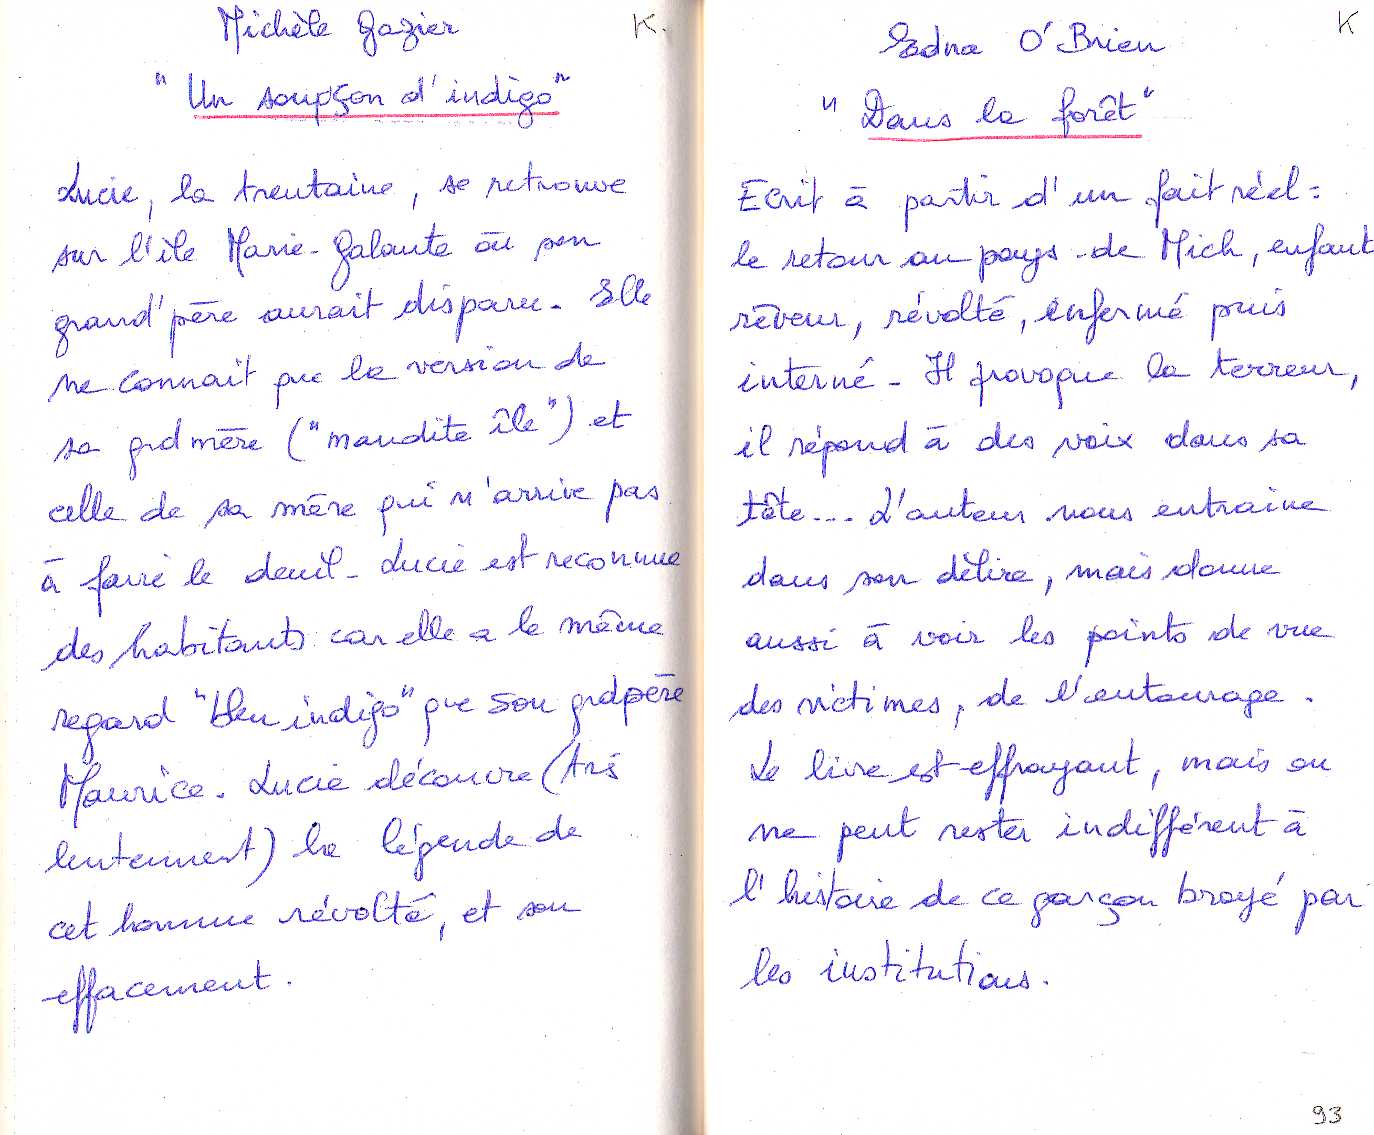 Michèle Gazier K.
"Un soupçon d'indigo"
Lucie, la trentaine, se retrouve
sur l'île Marie-Galante où son
grand'père aurait disparu. Elle
ne connait que la version de
sa grdmère ("maudite île") et
celle de sa mère qui n'arrive pas
à faire le deuil - Lucie est reconnue
des habitants car elle a le même
regard "bleu indigo" que son grdpère
Maurice. Lucie découvre (très
lentement) la légende de
cet homme révolté, et son
effacement.
Edna O'Brien K
"Dans la forêt"
Ecrit à partir d'un fait réel :
le retour au pays de Mich, enfant
rêveur, révolté, enfermé puis
interné - Il provoque la terreur,
il répond à des voix dans sa
tête... L'auteur nous entraine
dans son délire, mais donne
aussi à voir les points de vue
des victimes, de l'entourage.
Le livre est effrayant, mais on
ne peut rester indifférent à
l'histoire de ce garçon broyé par
les institutions.
93